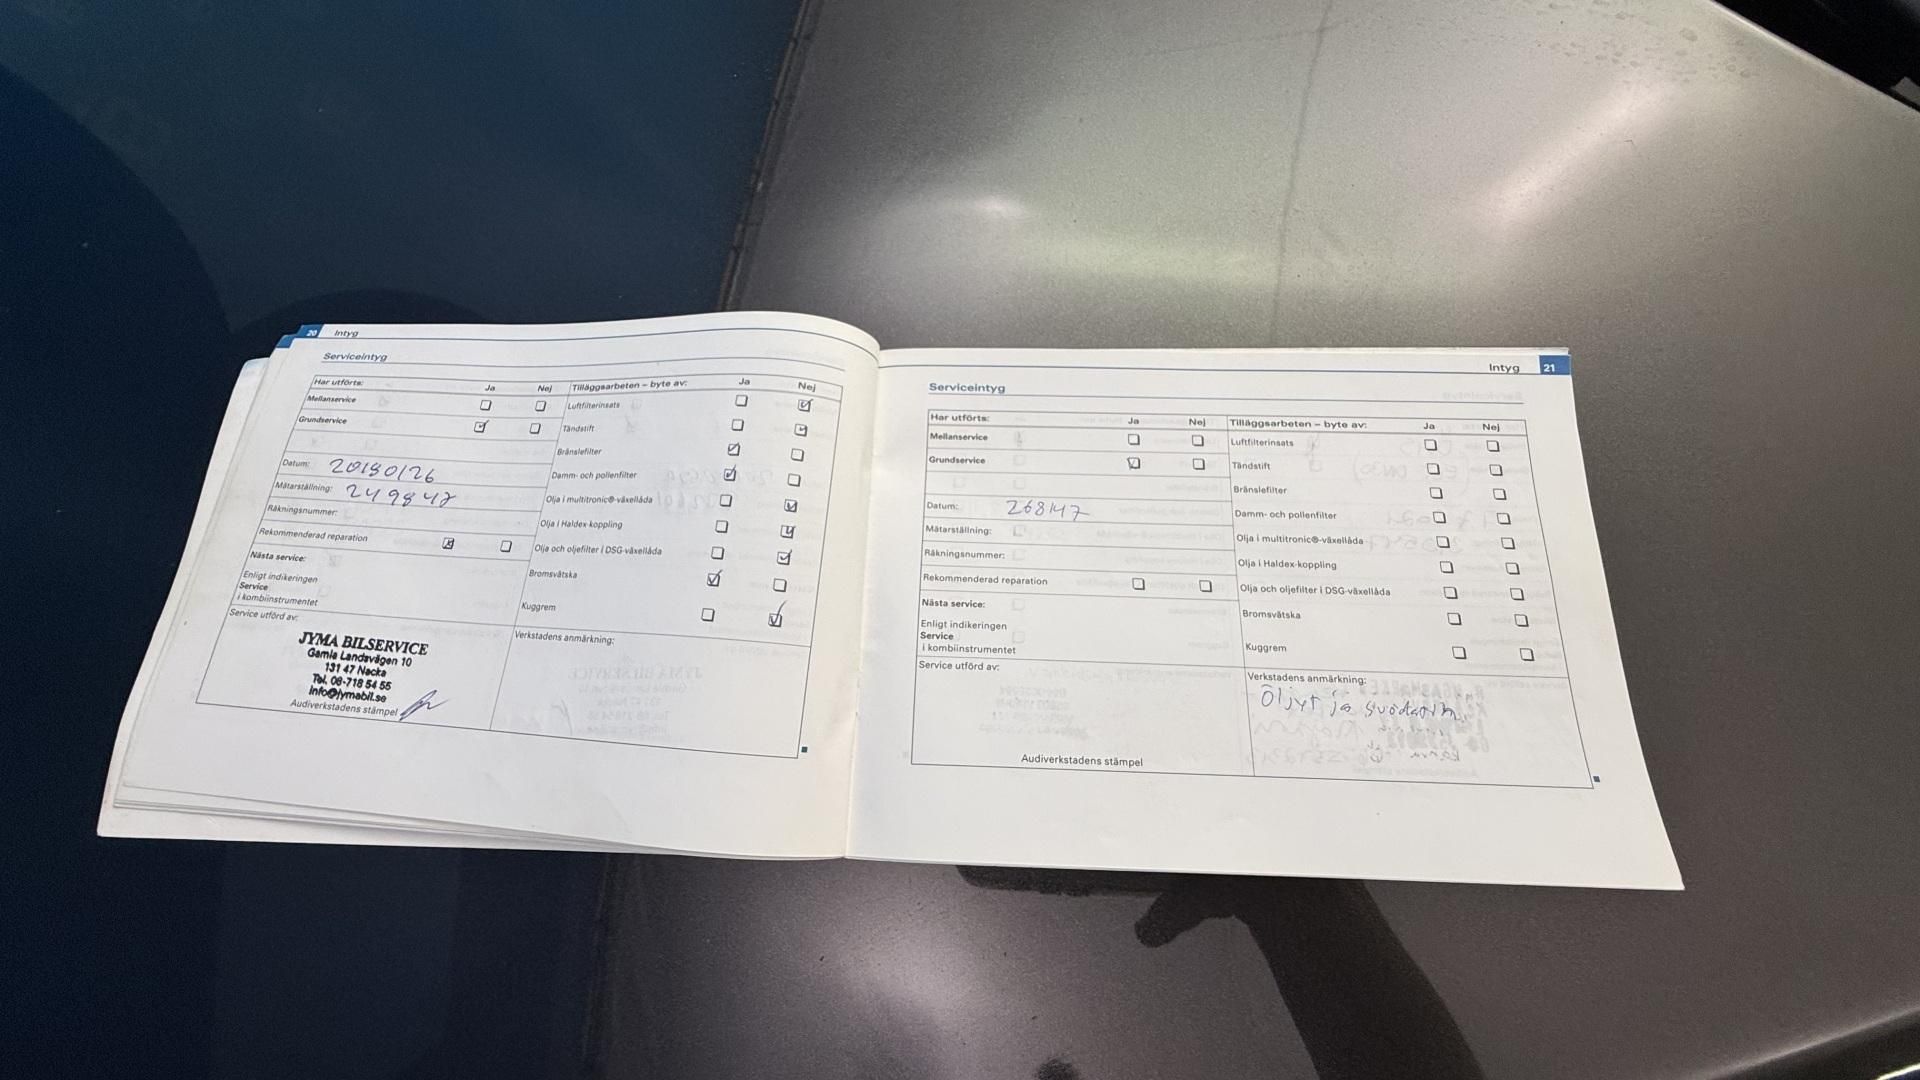 20 Intyg
Serviceintyg
Har utförts: Ja Nej
Mellanservice
Grundservice
Datum: 20190126
Mätarställning: 249847
Räkningsnummer:
Rekommenderad reparation
Nästa service:
Enligt indikeringen
Service
i kombiinstrumentet
Tilläggsarbeten – byte av: Ja Nej
Luftfilterinsats
Tändstift
Bränslefilter
Damm- och pollenfilter
Olja i multitronic®-växellåda
Olja i Haldex-koppling
Olja och oljefilter i DSG-växellåda
Bromsvätska
Kuggrem
Service utförd av:
JYMA BILSERVICE
Gamla Landsvägen 10
131 47 Nacka
Tel. 08-718 54 55
info@jymabil.se
Audiverkstadens stämpel
Verkstadens anmärkning:
Intyg 21
Serviceintyg
Har utförts: Ja Nej
Mellanservice
Grundservice
Datum: 268147
Mätarställning:
Räkningsnummer:
Rekommenderad reparation
Nästa service:
Enligt indikeringen
Service
i kombiinstrumentet
Tilläggsarbeten – byte av: Ja Nej
Luftfilterinsats
Tändstift
Bränslefilter
Damm- och pollenfilter
Olja i multitronic®-växellåda
Olja i Haldex-koppling
Olja och oljefilter i DSG-växellåda
Bromsvätska
Kuggrem
Service utförd av:
Audiverkstadens stämpel
Verkstadens anmärkning:
Öljyt ja suodatin